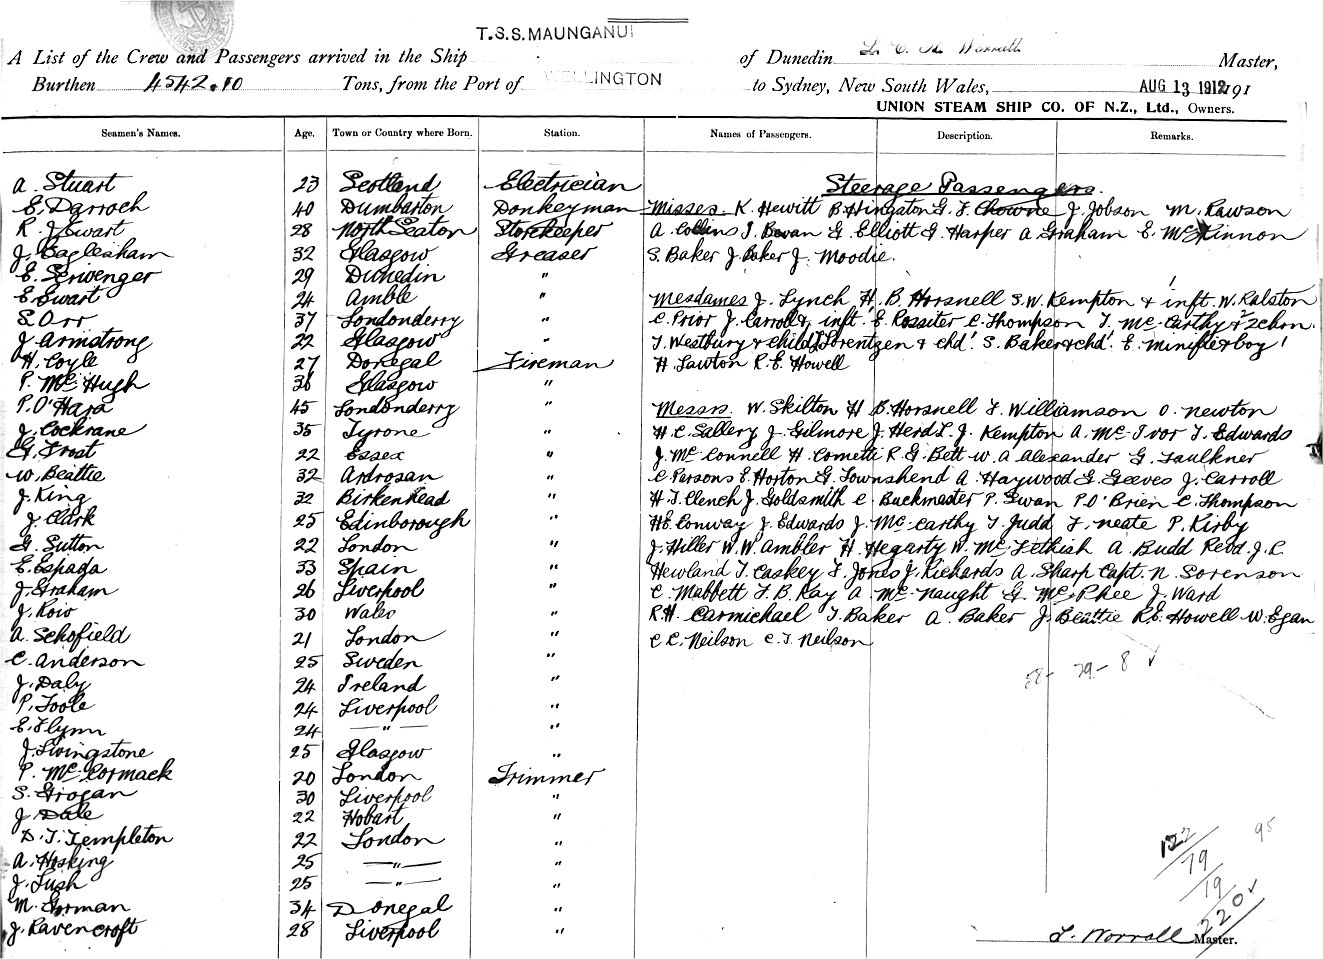 T.S.S. MAUNGANUI
A List of the Crew and Passengers arrived in the Ship of Dunedin Worrall Master,
Burthen 4542.10 Tons, from the Port of WELLINGTON to Sydney, New South Wales, AUG 13 1912 191
UNION STEAM SHIP CO. OF N.Z., Ltd., Owners.
Seamen's Names. Age. Town or Country where Born. Station. Names of Passengers. Description. Remarks.
A. Stuart 23 Scotland Electrician
E. Darroch 40 Dumbarton Donkeyman
R. J. Ewart 28 North Seaton Storekeeper
J. Eaglesham 32 Glasgow Greaser
E. Scrivenger 29 Dunedin "
E. Ewart 24 Amble "
S. Orr 37 Londonderry "
J. Armstrong 22 Glasgow "
H. Coyle 27 Donegal Fireman
P. McHugh 36 Glasgow "
P. O'Hara 45 Londonderry "
J. Cockrane 35 Tyrone "
G. Frost 22 Essex "
W. Beattie 32 Ardrosan "
J. King 32 Birkenhead "
J. Clark 25 Edinborough "
G. Sutton 22 London "
E. Espada 33 Spain "
J. Graham 26 Liverpool "
J. 30 Wales "
A. Schofield 21 London "
C. Anderson 25 Sweden "
J. Daly 24 Ireland "
P. Toole 24 Liverpool "
E. Flynn 24 — " — "
J. Livingstone 25 Glasgow "
P. McCormack 20 London Trimmer
S. Grogan 30 Liverpool "
J. Dale 22 Hobart "
D. J. Templeton 22 London "
A. Hosking 25 — " — "
J. Lush 25 — " — "
M. Gorman 34 Donegal "
J. Ravencroft 28 Liverpool "
Steerage Passengers.
Misses. K. Hewitt B. Hingston G. F. Chowne J. Jobson M. Rawson
A. Collins J. Bevan G. Elliott G. Harper A. Graham E. McKinnon
S. Baker J. Baker J. Moodie.
Mesdames J. Lynch H. B. Horsnell S. W. Kempton & inft. W. Ralston
C. Prior J. Carroll & inft. E. Rossiter C. Thompson T. McCarthy & 2 chn.
T. Westbury & child Lorentzen & chd. S. Baker & chd. E. Minifie & boy
H. Lawton R. E. Howell
Messrs. W. Skilton H. B. Horsnell F. Williamson O. Newton
H. C. Sallery J. Gilmore J. Herd L. J. Kempton A. McIvor T. Edwards
J. McConnell H. Cometti R. G. Bett W. A. Alexander G. Faulkner
C. Persons E. Horton G. Townshend A. Haywood G. Geeves J. Carroll
H. J. Clench J. Goldsmith C. Buckmaster P. Swan P. O'Brien C. Thompson
H. E. Conway J. Edwards J. McCarthy T. Judd F. Neate P. Kirby
J. Hiller W. W. Ambler H. Hegarty W. McFetkish A. Budd Revd. J. C.
Hewland T. Caskey F. Jones J. Richards A. Sharp Capt. N. Sorenson
C. Mabbett F. B. Kay A. McNaught G. McPhee J. Ward
R. H. Carmichael T. Baker A. Baker J. Beattie R. E. Howell W. Egan
C. C. Neilson C. J. Neilson
58 - 29 - 8 ✓
95
122
19
19
220 ✓
L. Worrall Master.